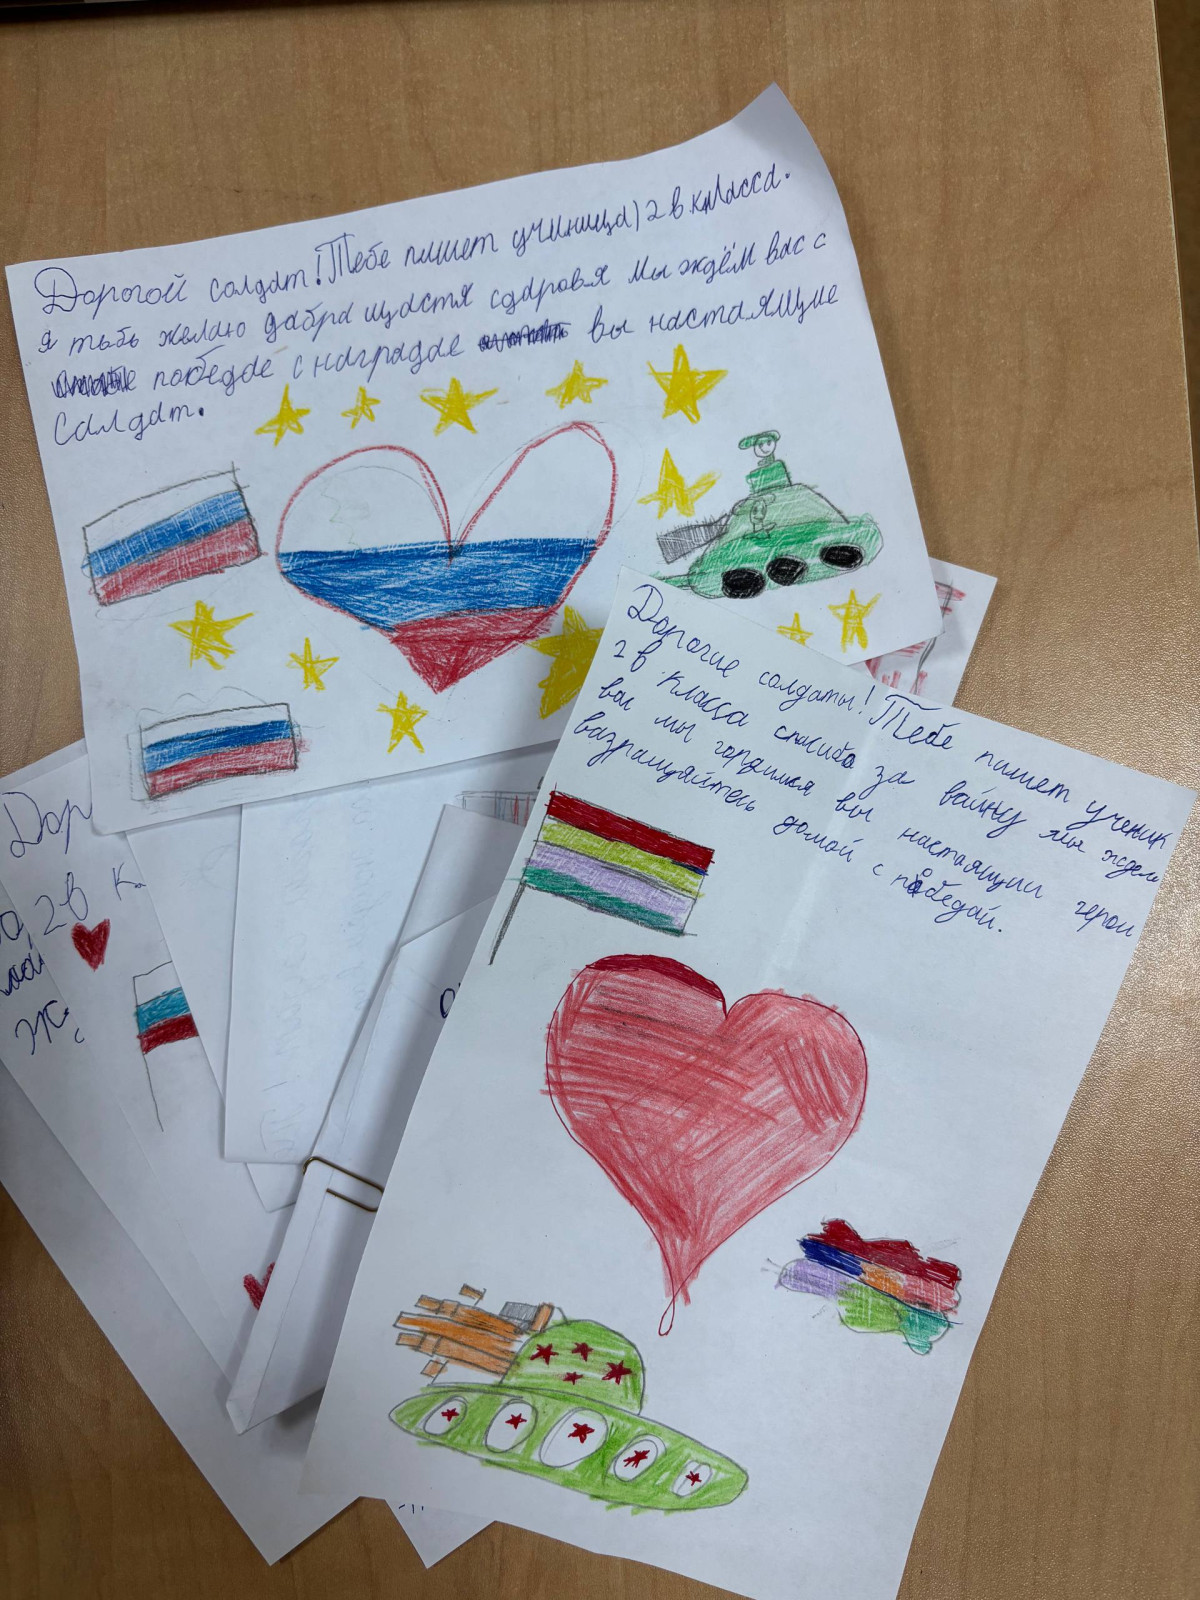 Дорогой солдат! Тебе пишет учиница) 2 в класса.
я тьбь желаю дабра щастя сдаровя мы ждём вас с
победае с наградае вы настаящие
Салдат.
Дорогие солдаты! Тебе пишет ученик
2 в класса спасибо за вайну мы ждем
вас мы гордимся вы настоящии герои
вазращяйтесь домой с победай.
Дор
2в к